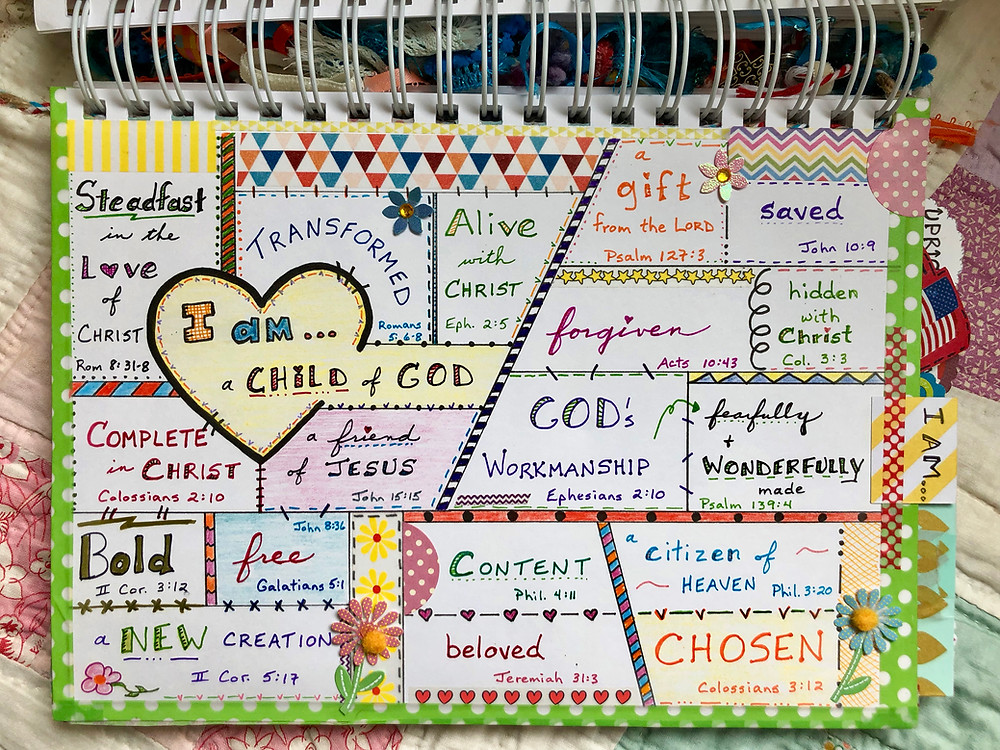 Steadfast
in the
Love
of
CHRIST
Rom 8:31-8
TRANSFORMED
Romans
5:6-8
Alive
with
CHRIST
Eph. 2:5
a
gift
from the LORD
Psalm 127:3
saved
John 10:9
I am...
a CHILD of GOD
forgiven
Acts 10:43
hidden
with
Christ
Col. 3:3
COMPLETE
in CHRIST
Colossians 2:10
a friend
of JESUS
John 15:15
GOD's
WORKMANSHIP
Ephesians 2:10
fearfully
+
WONDERFULLY
made
Psalm 139:4
I AM...
Bold
II Cor. 3:12
John 8:36
free
Galatians 5:1
CONTENT
Phil. 4:11
a citizen of
HEAVEN Phil. 3:20
a NEW CREATION
II Cor. 5:17
beloved
Jeremiah 31:3
CHOSEN
Colossians 3:12